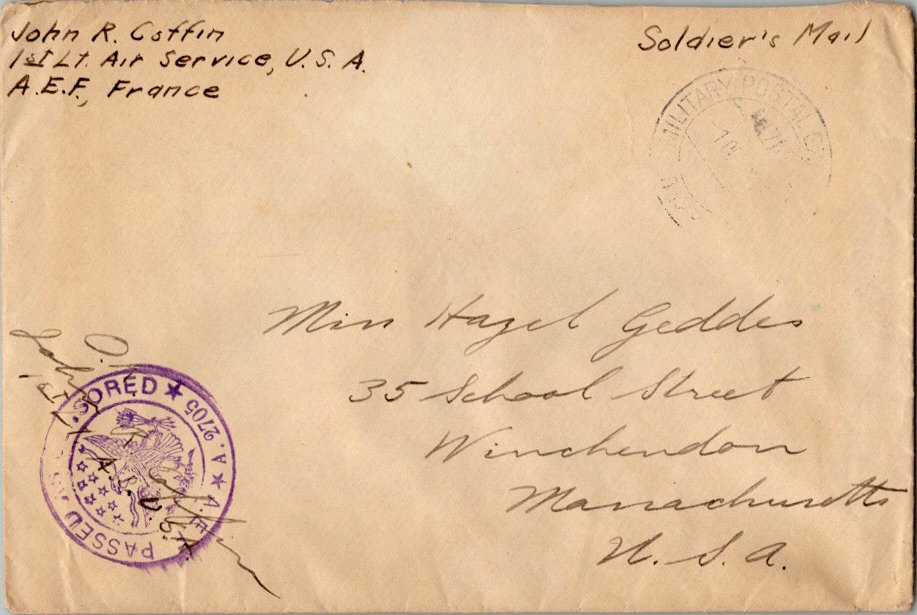 John R. Coffin
1st Lt. Air Service, U.S.A.
A.E.F., France
Soldier's Mail
MILITARY POSTAL
Miss Hazel Geddes
35 School Street
Winchendon
Massachusetts
U.S.A.
O.K.
John R. Coffin
1st Lt. A.S. U.S.A.
PASSED AS CENSORED ★ A.E.F. ★ A. 2705